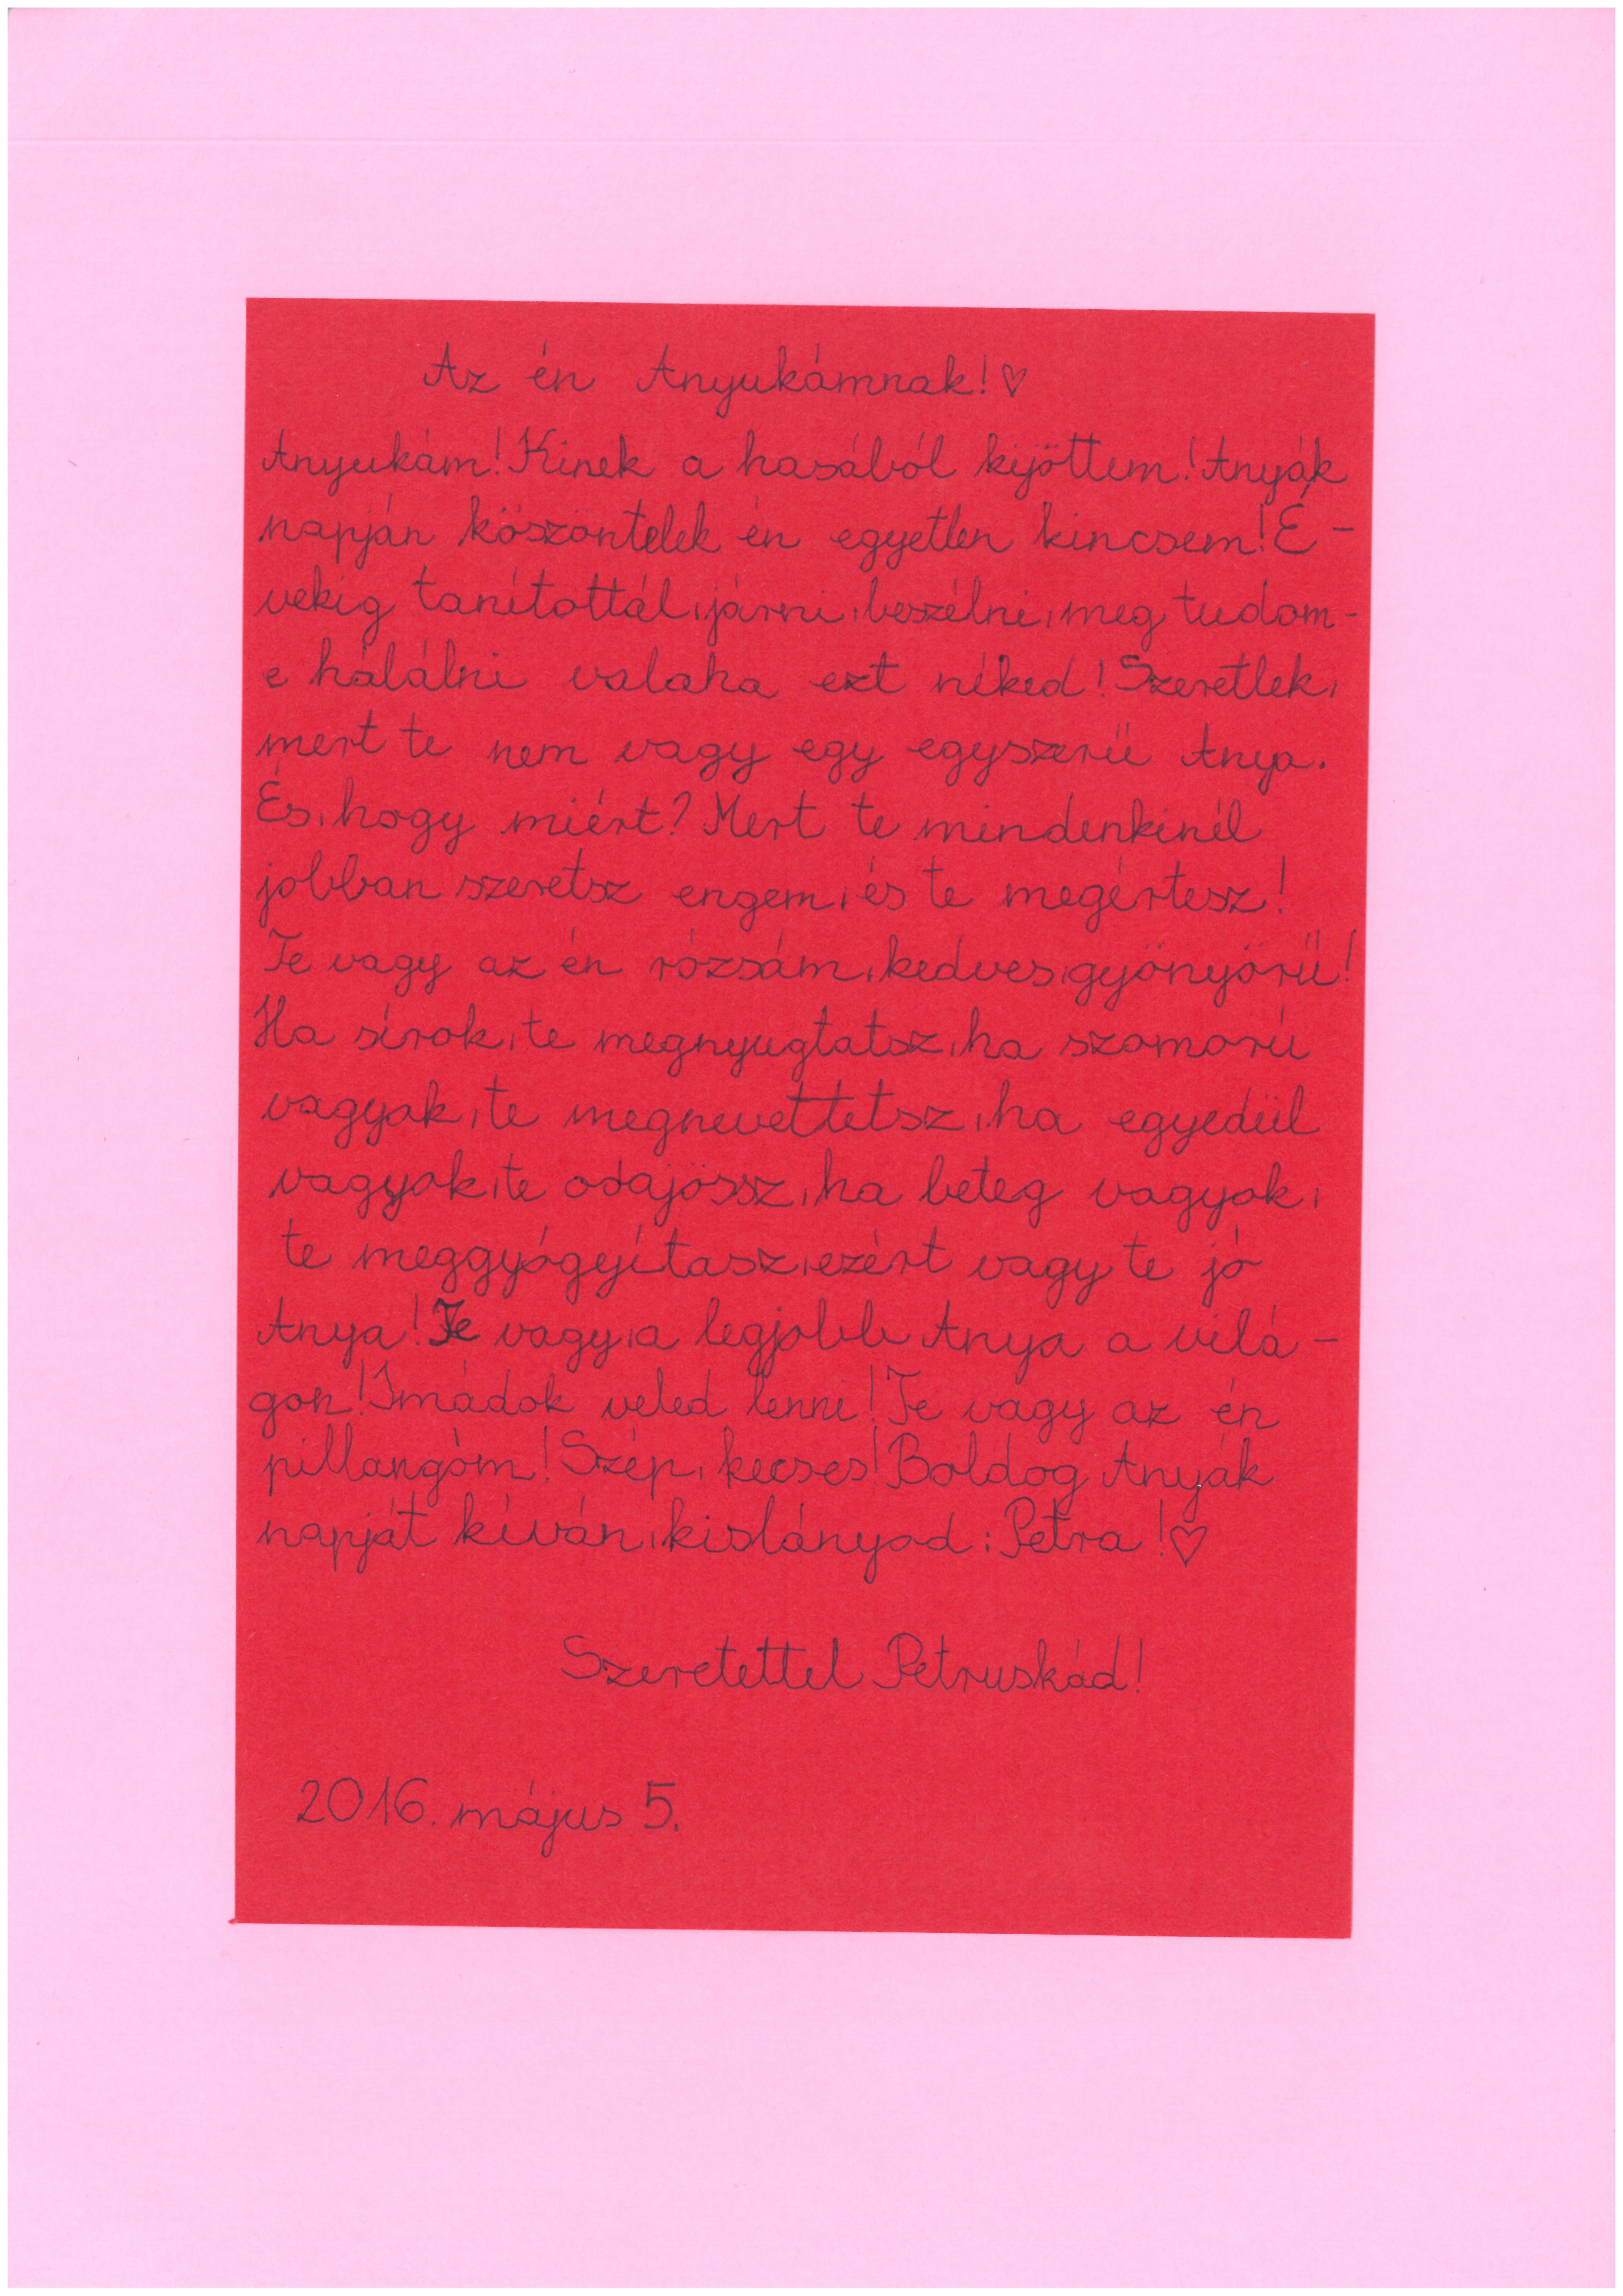 Az én Anyukámnak!♡
Anyukám! Kinek a hasából kijöttem! Anyák
napján köszöntelek én egyetlen kincsem! É-
vekig tanítottál, járni, beszélni, meg tudom-
e hálálni valaha ezt néked! Szeretlek,
mert te nem vagy egy egyszerű Anya.
És, hogy miért? Mert te mindenkinél
jobban szeretsz engem, és te megértesz!
Te vagy az én rózsám, kedves, gyönyörű!
Ha sírok, te megnyugtatsz, ha szomorú
vagyok, te megnevettetsz, ha egyedül
vagyok, te odajössz, ha beteg vagyok,
te meggyógyítasz, ezért vagy te jó
Anya! Te vagy, a legjobb Anya a vilá-
gon! Imádok veled lenni! Te vagy az én
pillangóm! Szép, kecses! Boldog Anyák
napját kíván, kislányod: Petra!♡
Szeretettel Petruskád!
2016. május 5.